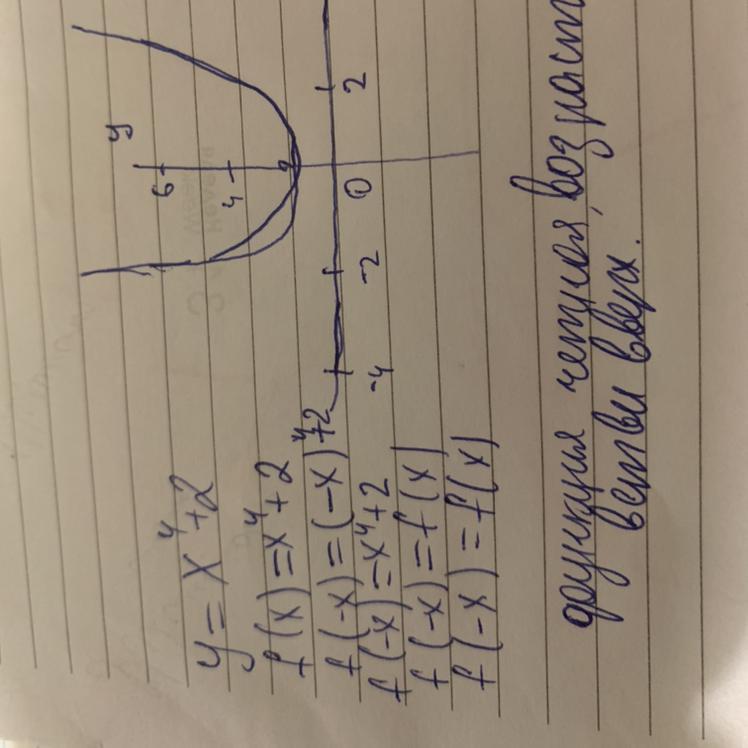 y = x⁴+2
f(x)=x⁴+2
f(-x)=(-x)⁴+2
f(-x)=x⁴+2
f(-x)=f(x)
f(-x)=f(x)
y
6
4
2
-4
-2
0
2
функция четная, возраст
ветви вверх.